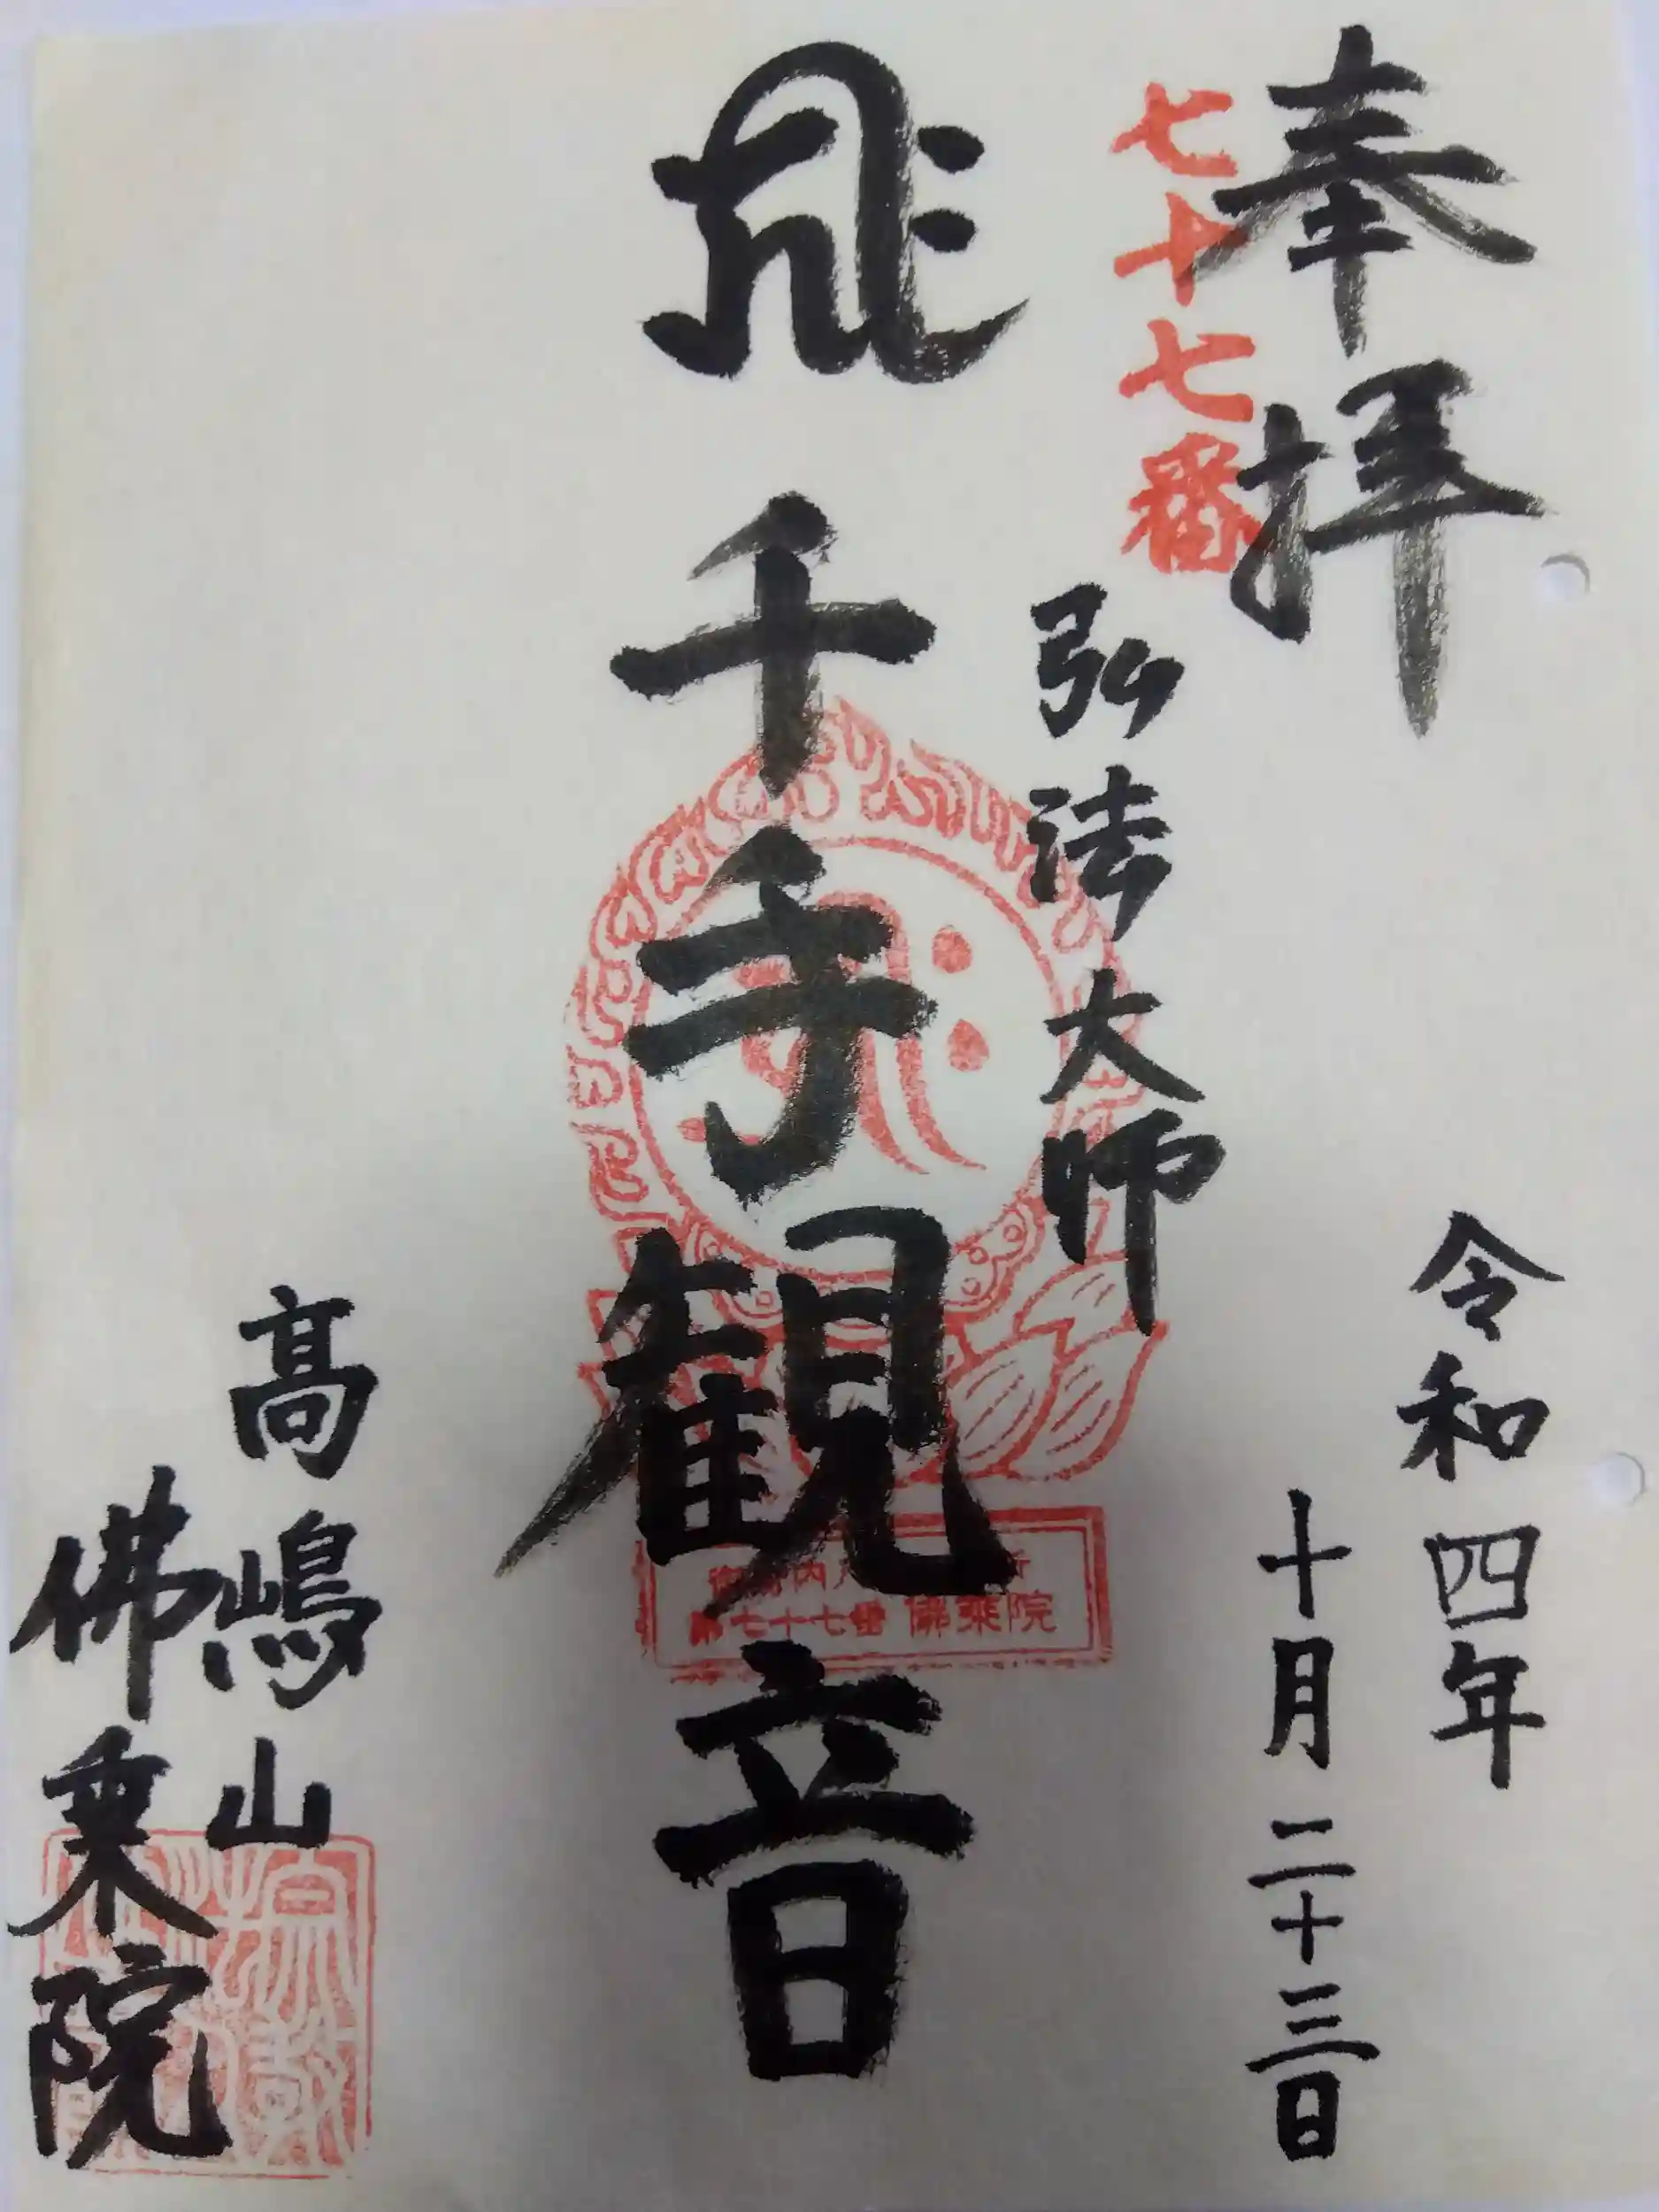 奉拝
七十七番
令和四年
十月二十三日
弘法大師
千手観音
第七十七番 佛乘院
高嶋山
佛乗院